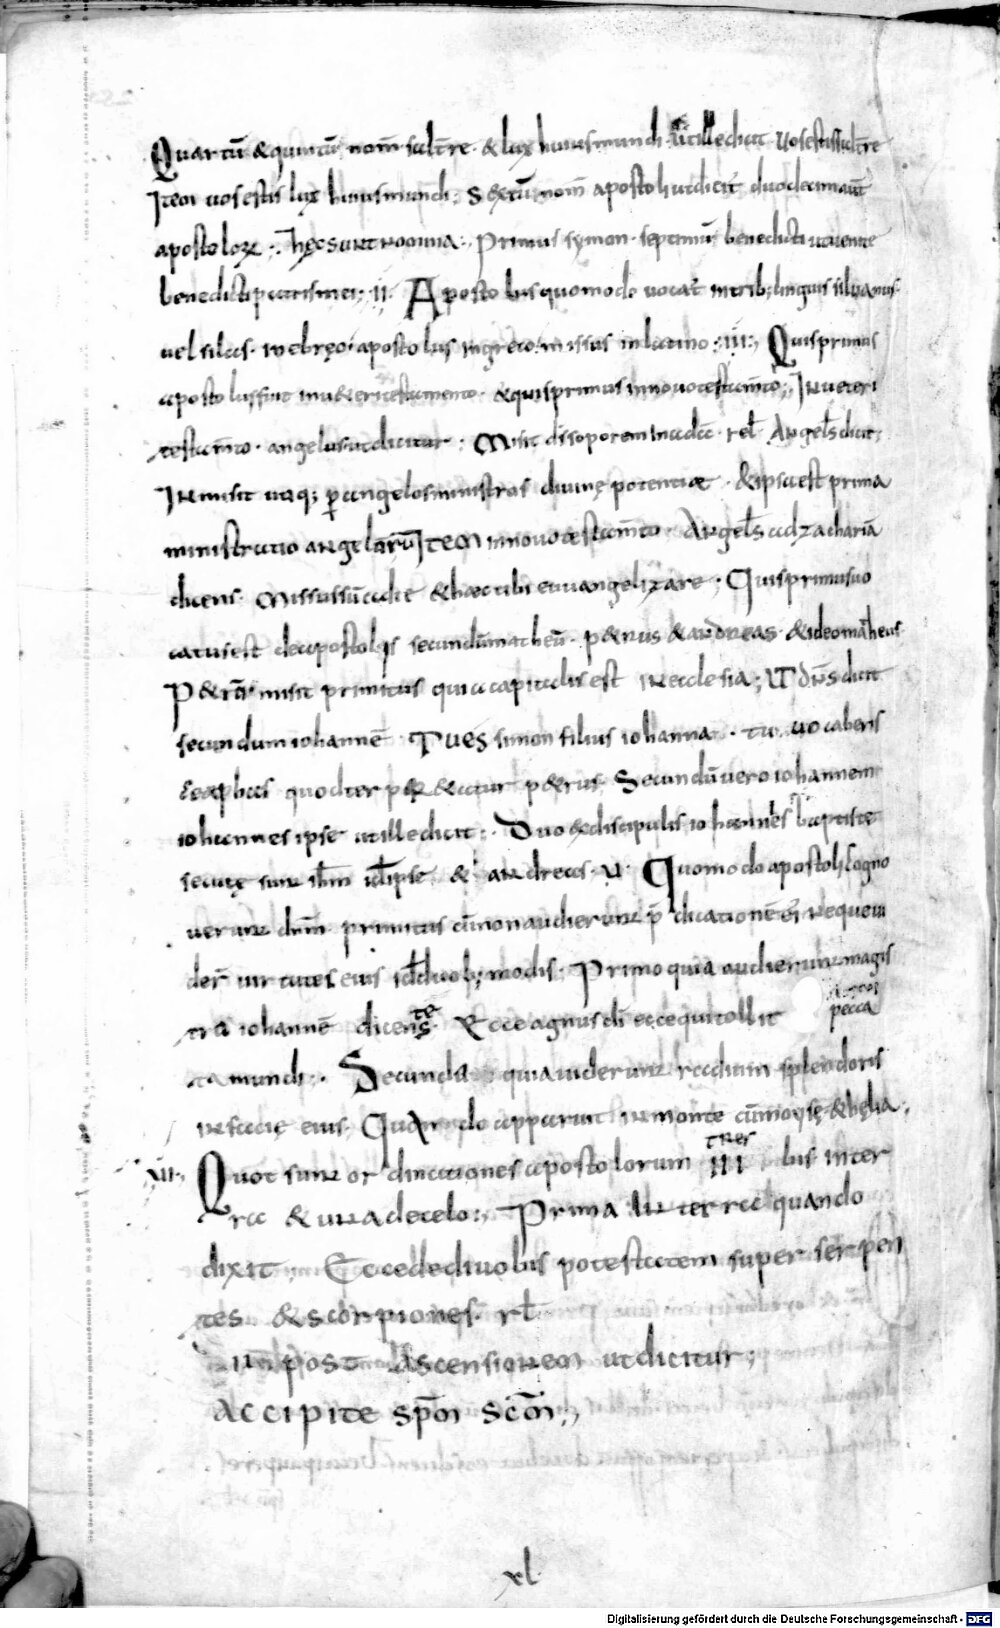 Quartū & quintū nom̄ sal t̄re · & lux huius mundi · ut ille dicit Uos estis sal t̄re
Item uos estis lux huius mundi ; Sextū nom̄ apostoli ut dicit duodecim aut̄
apostoloꝝ ; hęc sunt nomina ; Primus symon · septimū benedicti ut uenite
benedicti patris mei ; II · Apostolus quomodo uocat̄ in trib; linguis siluanus
uel silas · in ebreo · apostolus in greco · missus in latino ; III ; Quis primus
apostolus fuit in u&eri testamento · & quis primus in nouo testam̄to ; In ueteri
testam̄to · angelus ut dicitur ; Misit d̄s soporem in adā · rel̄ Angel̄s dicit ;
In misit utiq; ꝑ angelos ministros diuinę potentiæ · & ipsa est prima
ministratio angelorū Item in nouo testam̄to · Angel̄s ad zachariā
dicens · Missus sū ad te & hæc tibi euuangelizare ; Quis primus uo
catus est de apostolis secundū matheū · p&rus & andreas · & ideo matheus
P&rū misit primitus quia capitalis est in ecclesia ; UT dn̄s dicit
secundum iohannē · Tu es simon filius iohanna · tu uocaberis
cephas quod interpr&atur p&rus · Secundū uero iohannem
iohannes ipse ut ille dicit ; Duo ex discipulis iohannes baptiste
secutę sunt ih̄m id̄ ipse & andreas · V · Quomodo apostoli cogno
uerunt dn̄m primitus cū non audierunt p̄dicationē ei' neque ui
der̄ uirtutes eius id̄ duob; modis · Primo quia audierunt magis
trū iohannē dicentes · Ecce agnus dī ecce qui tollit pecca
ta mundi ; Secunda quia uiderunt radium splendoris
in facię eius Quando apparuit in monte cū moysę & helia ;
XII ; Quot sunt ordinationes apostolorum III tres bis in ter
ra & una de celo ; Prima in terra quando
dixit ; Ecce dedi uobis potestatem super serpen
tes & scorpiones · rl̄
post Ascensionem ut dicitur ;
Accipite sp̄m sc̄m ;
xl
Digitalisierung gefördert durch die Deutsche Forschungsgemeinschaft - DFG